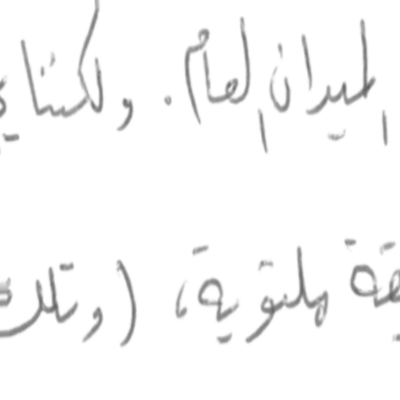 الميدان العام. ولكننا
ملتوية، (وتلك